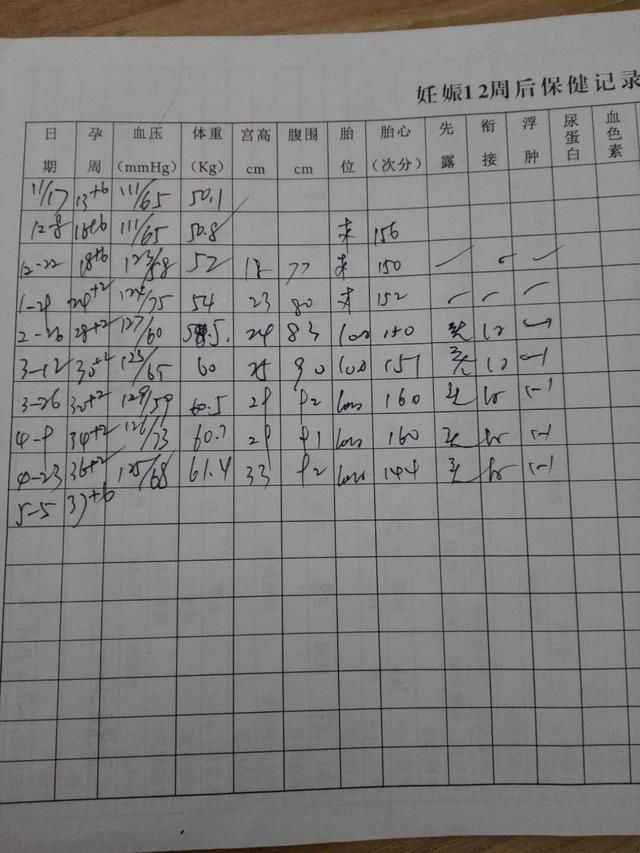 妊娠12周后保健记录
日期 孕周 血压(mmHg) 体重(Kg) 宫高cm 腹围cm 胎位 胎心(次分) 先露 衔接 浮肿 尿蛋白 血色素
11/17 13+6 111/65 50.1
12-8 111/65 50.8 未 156
12-22 18+6 123/68 52 18 77 未 150 — — —
1-29 24+2 124/75 54 23 80 未 152 — — —
2-26 28+2 127/60 24 83 LOA 头
3-12 30+2 123/65 60 25 90 LOA 151 头
3-26 32+2 129/59 60.5 29 92 LOA 160 头 (-)
4-9 34+2 126/73 60.7 29 91 LOA 160 头 (-)
4-23 36+2 125/68 61.4 33 92 LOA 144 头 (-)
5-5 37+6